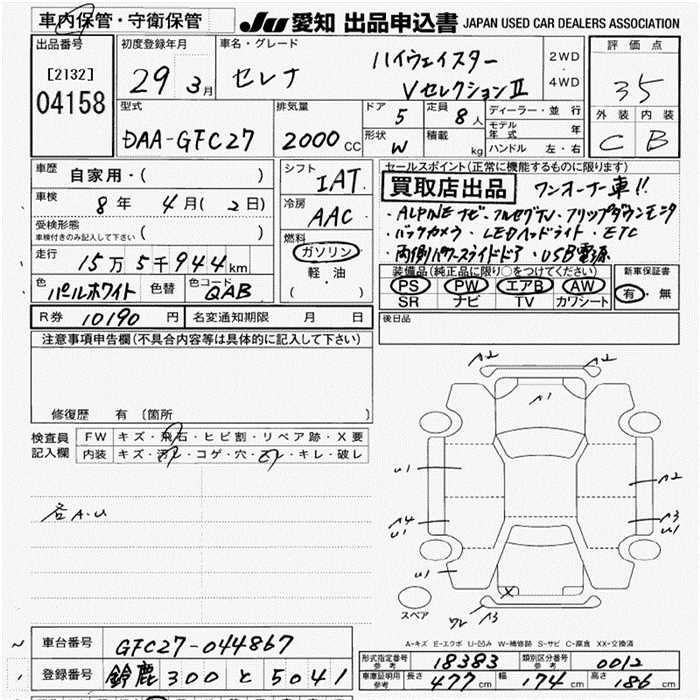 車内保管・守衛保管 JU 愛知 出品申込書 JAPAN USED CAR DEALERS ASSOCIATION
出品番号 [2132] 04158
初度登録年月 29 3月
車名・グレード セレナ ハイウェイスター VセレクションⅡ 2WD・4WD
評価点 35
外装 内装
C B
型式 DAA-GFC27
排気量 2000 CC
ドア 5 定員 8人
形状 W 積載 kg
ディーラー・並行
モデル年式 年
ハンドル 左・右
車歴 自家用・( )
車検 8年 4月(2日)
受検形態 車検付きのみ記入して下さい ( )
走行 15万5千944km
色 パールホワイト 色替 色コード QAB
シフト IAT
冷房 AAC
燃料 ガソリン
軽・油
( )
セールスポイント(正常に機能するものに限ります)
買取店出品 ワンオーナー車!!
・ALPINEナビ・フルセグTV・フリップダウンモニタ
・バックカメラ・LEDヘッドライト・ETC
・両側パワースライドドア・USB電源
装備品(純正品に限り○をつけてください)
PS PW エアB AW
SR ナビ TV カワシート
新車保証書
有・無
R券 10190円 名変通知期限 月 日
後日品
注意事項申告欄(不具合内容等は具体的に記入して下さい)
修復歴 有 〔箇所 〕
検査員記入欄 FW キズ・飛石・ヒビ割・リペア跡・X要
内装 キズ・汚レ・コゲ・穴・スレ・キレ・破レ
各A.U
A2 A2
A1
U1
A2
A4 U1
A3 U1
U1
X
ワレ A3
スペア
A-キズ E-エクボ U-凹み W-補修跡 S-サビ C-腐食 XX-交換済
車台番号 GFC27-044867
登録番号 鈴鹿 300 と 5041
形式指定番号 参考 18383 類別区分番号 参考 0012
車庫証明用 参考 長さ 477cm 幅 174cm 高さ 186cm